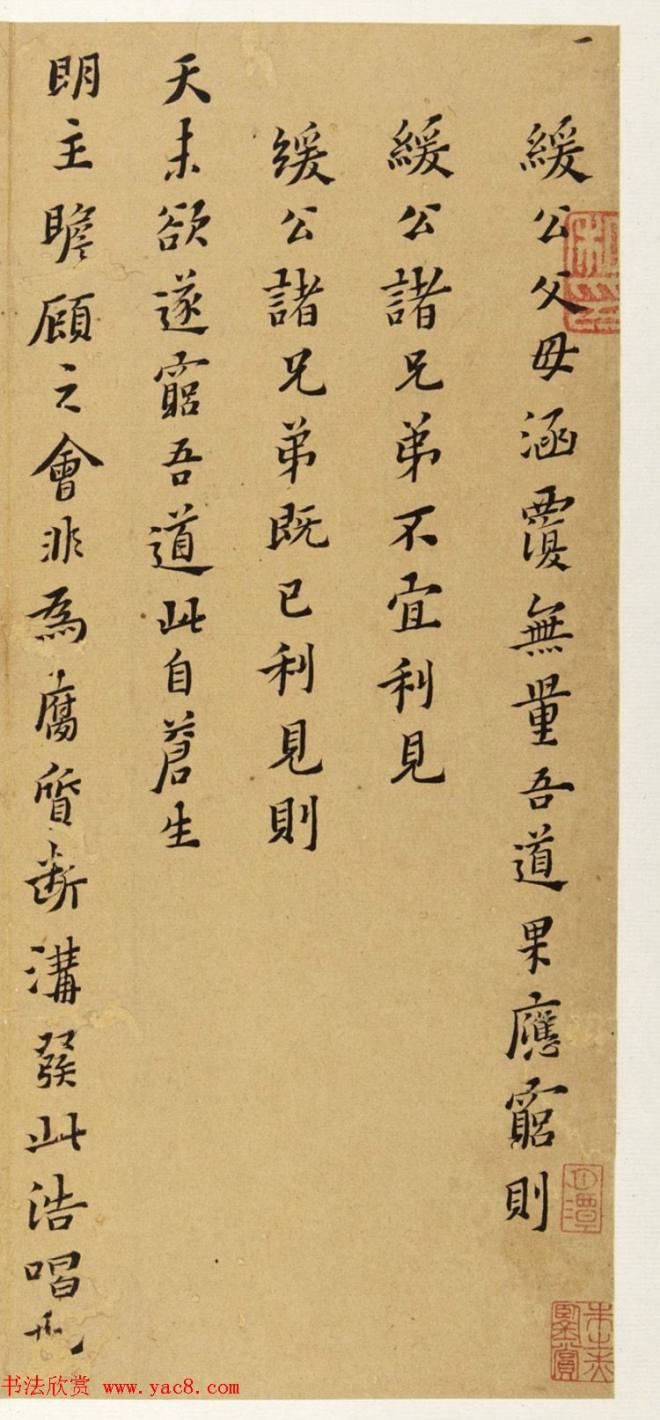 緩公父母涵覆無量吾道果應窮則
緩公諸兄弟不宜利見
緩公諸兄弟既已利見則
天未欲遂窮吾道此自蒼生
明主瞻顧之會非為腐質斷溝發此浩唱也
书法欣赏 www.yac8.com